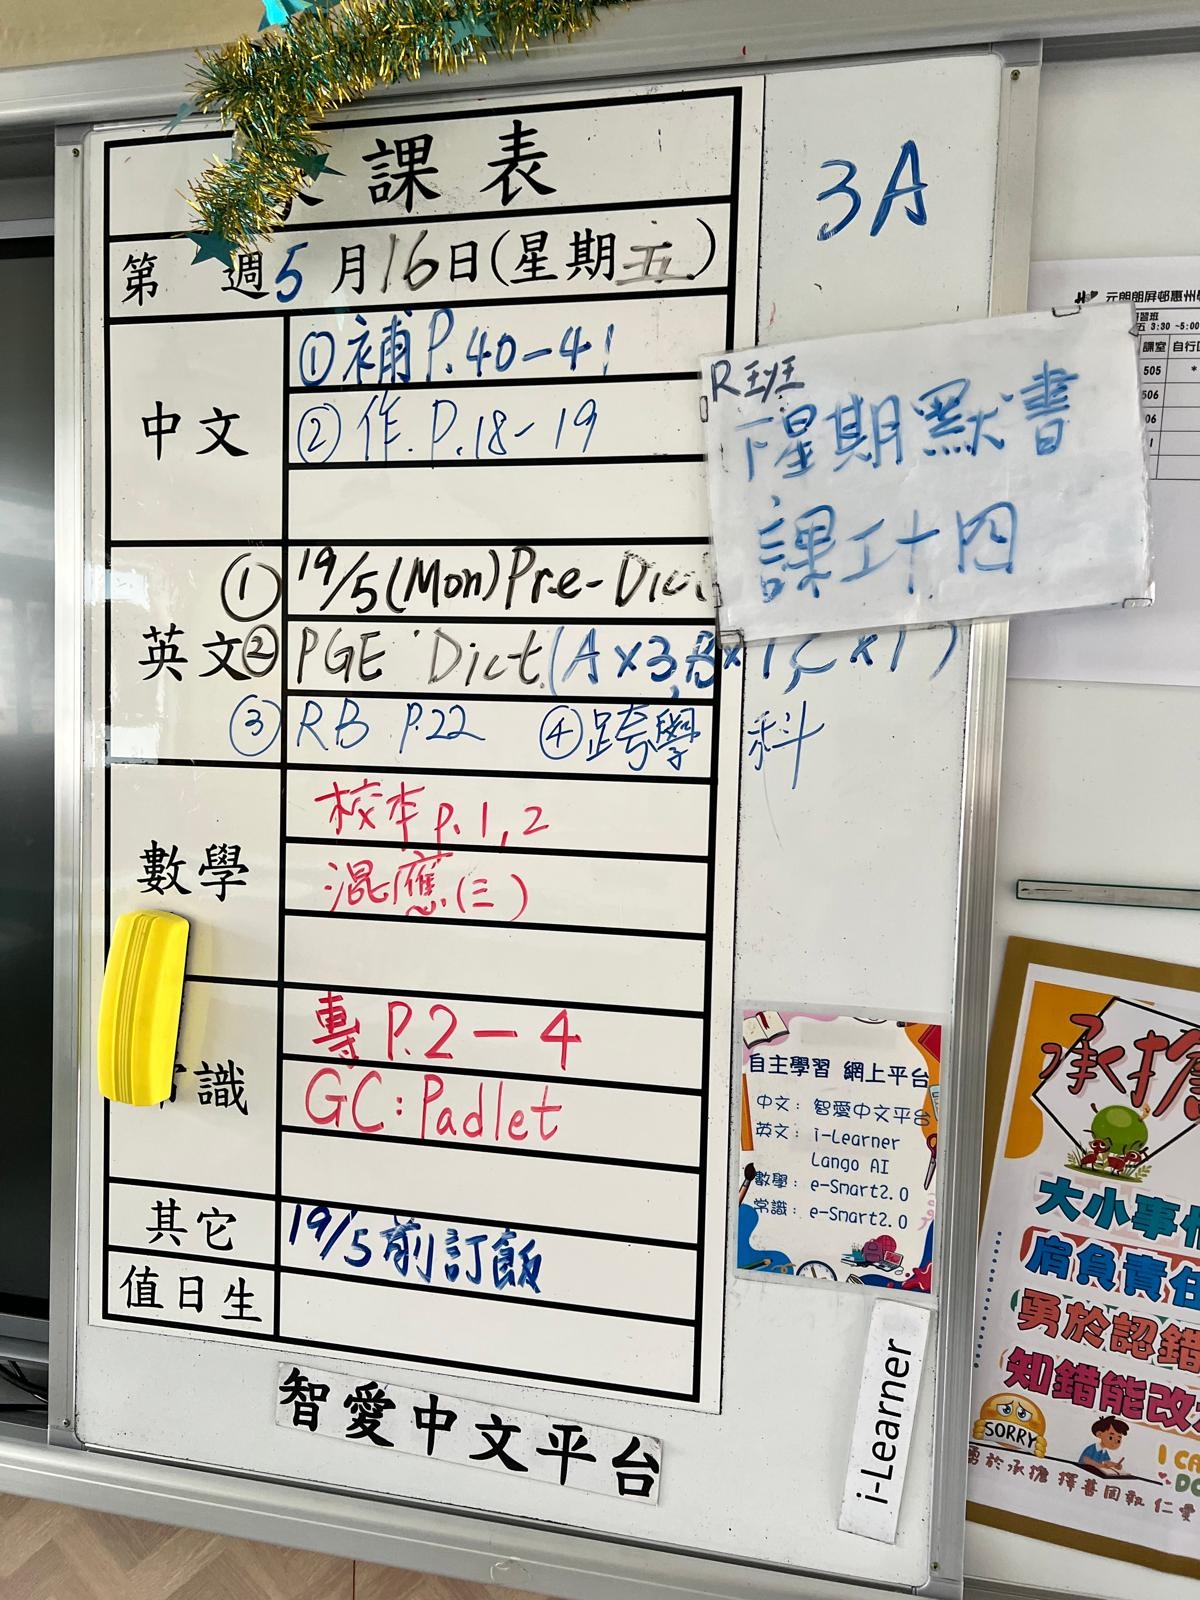 課表
3A
第 週 5月16日(星期五)
中文
①補P.40-41
②作.P.18-19
R班
下星期默書
課工十四
英文
① 19/5(Mon)Pre-Dict
② PGE Dict.(A×3,B×1,C×1)
③ RB P.22 ④跨學科
數學
校本p.1,2
混應(三)
識
專P.2-4
GC:Padlet
其它
19/5前訂飯
值日生
智愛中文平台
i-Learner
自主學習 網上平台
中文: 智愛中文平台
英文: i-Learner
Lango AI
數學: e-Smart2.0
常識: e-Smart2.0
元朗朗屏邨惠州
五 3:30 ~5:00
課室 自行
505 *
506
06
1
承擔
大小事情
肩負責任
勇於認錯
知錯能改
SORRY
I CA
DO
勇於承擔 擇善固執 仁愛